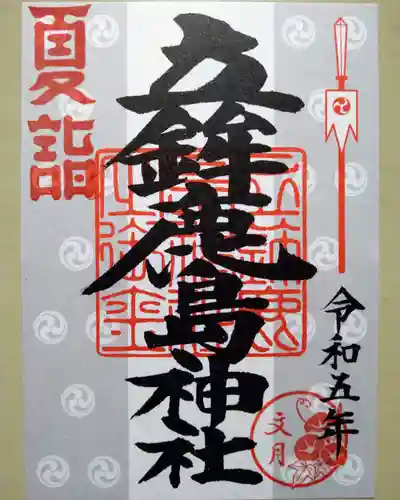 夏詣
五鉾鹿島神社
令和五年
文月